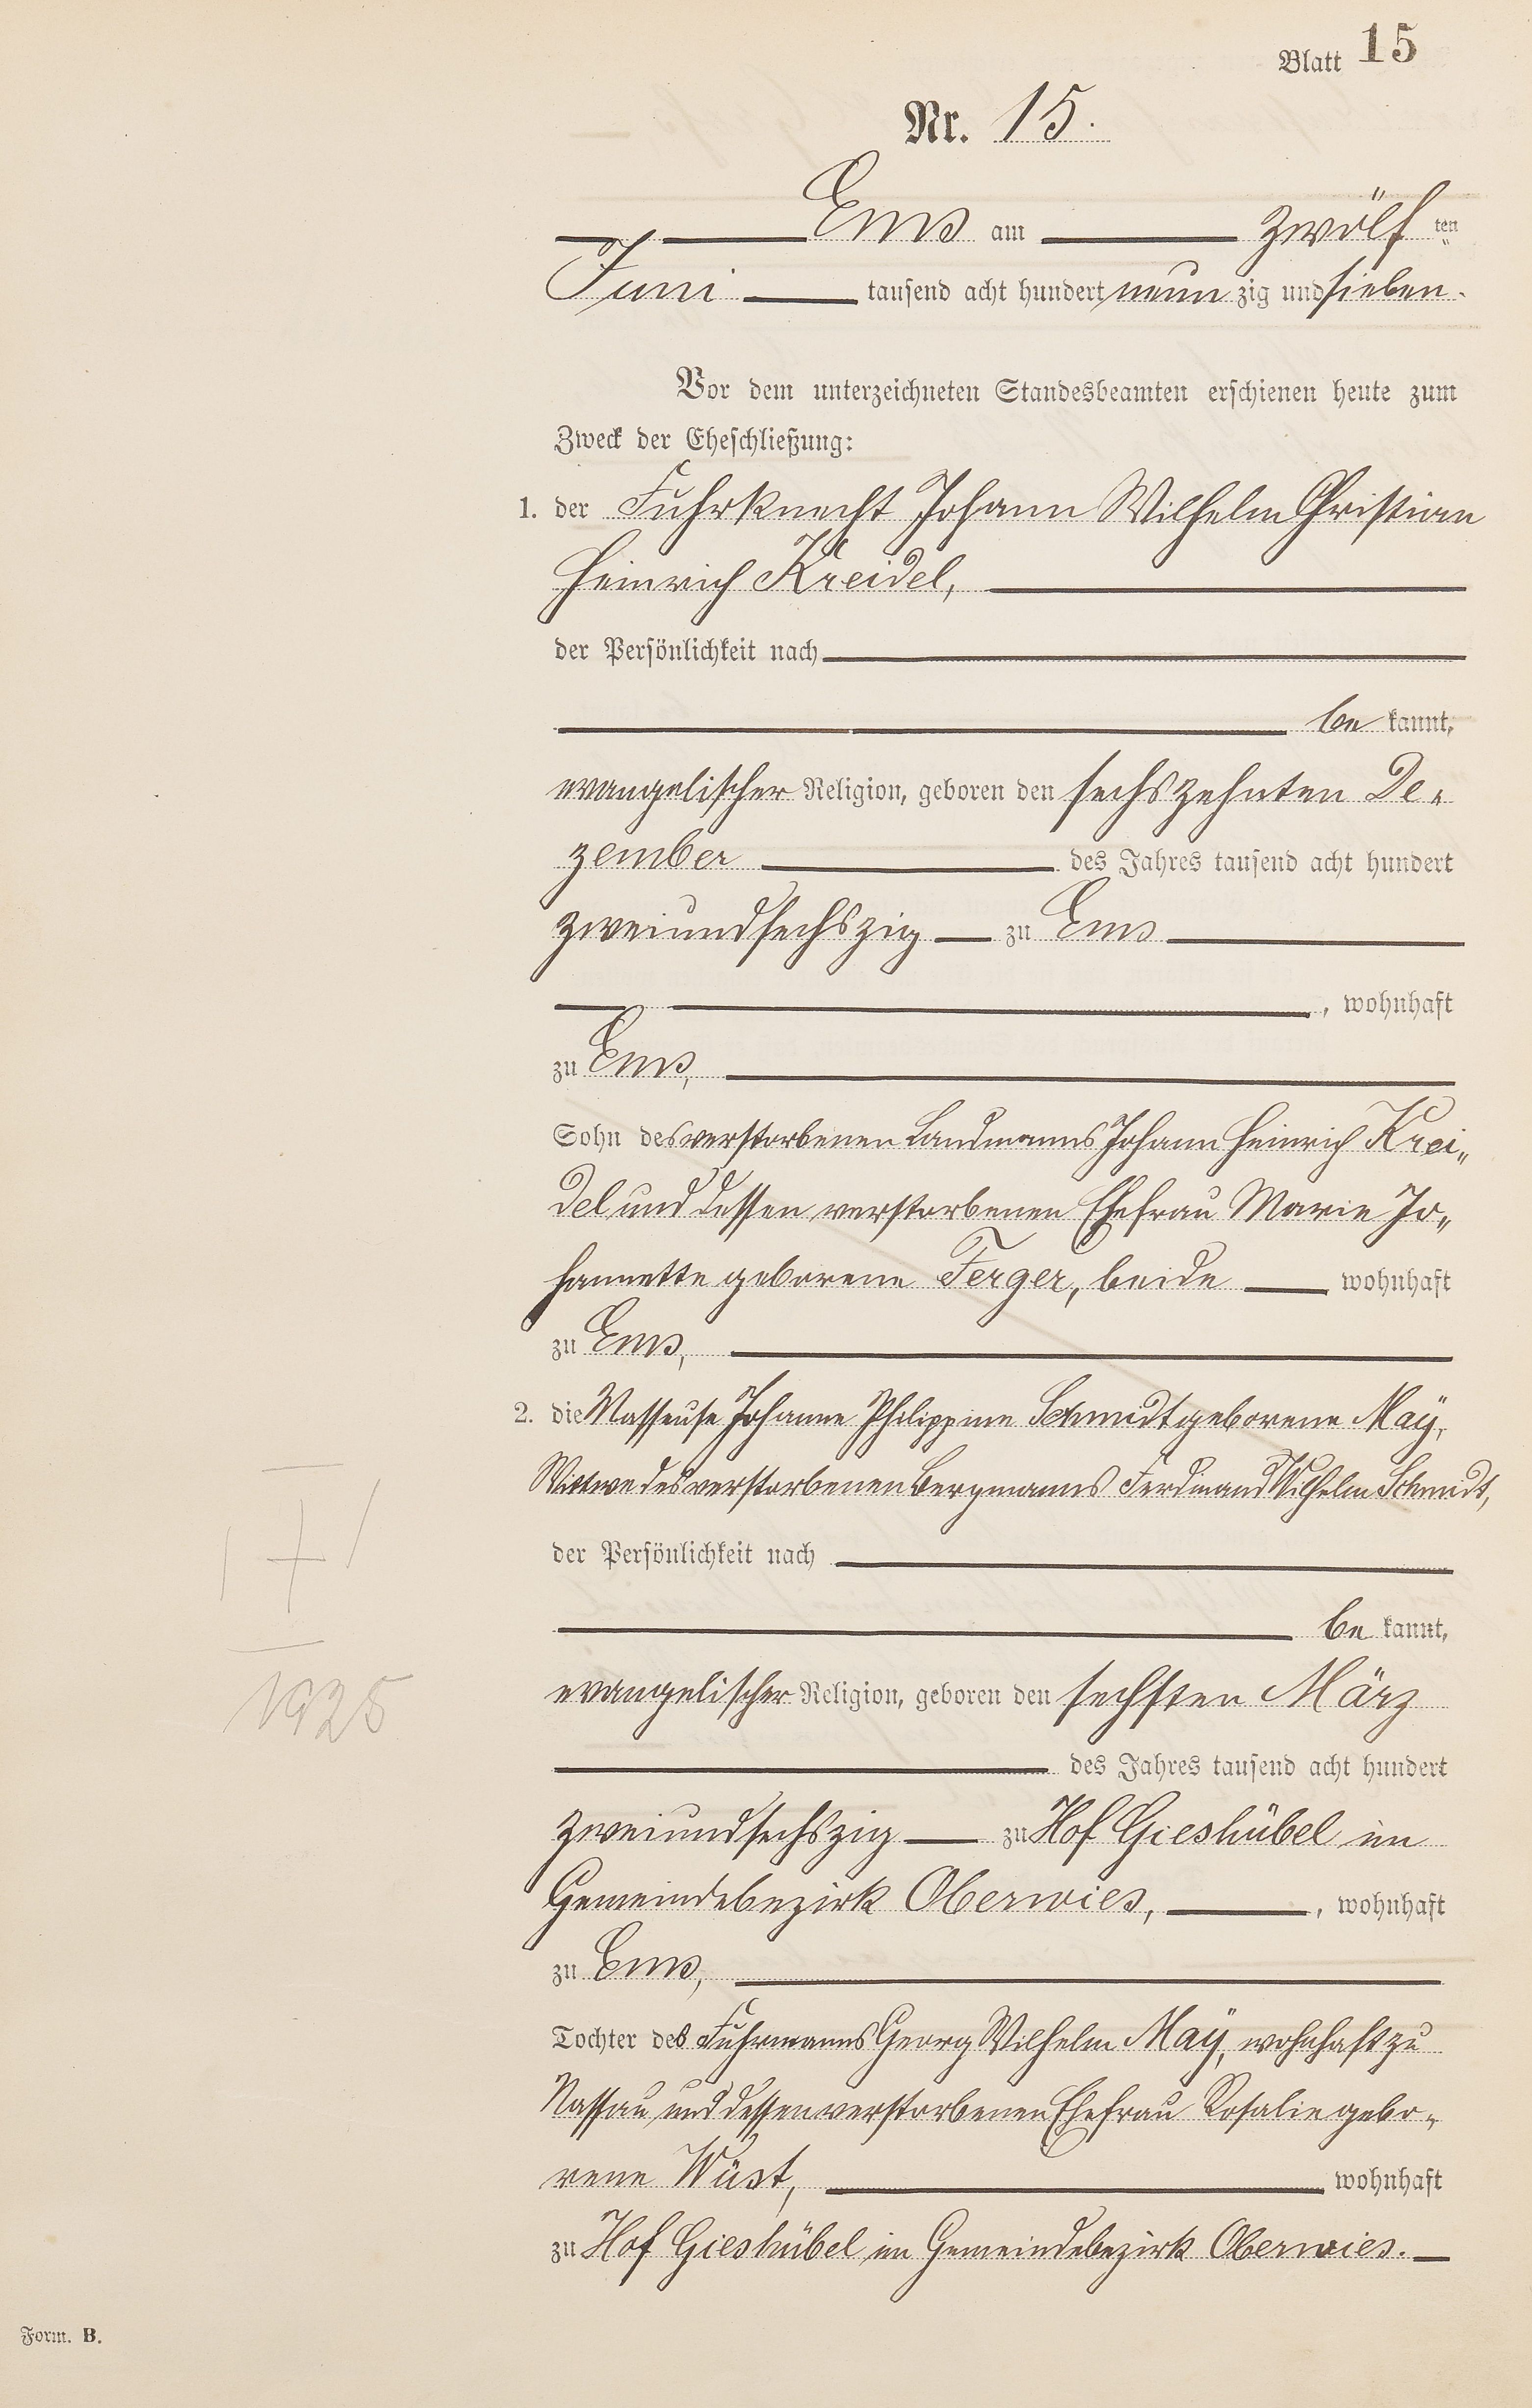 Blatt 15
Nr. 15.
Ems am zwölf ten
Juni tausend acht hundert neun zig und sieben.
Vor dem unterzeichneten Standesbeamten erschienen heute zum
Zweck der Eheschließung:
1. der Fuhrknecht Johann Wilhelm Christian
Heinrich Kreidel,
der Persönlichkeit nach
be kannt,
evangelischer Religion, geboren den sechszehnten De-
zember des Jahres tausend acht hundert
zweiundsechszig zu Ems
, wohnhaft
zu Ems,
Sohn des verstorbenen Landmanns Johann Heinrich Krei-
del und dessen verstorbenen Ehefrau Marie Jo-
hannette geborene Ferger, beide wohnhaft
zu Ems,
2. die Masseuse Johanne Philippine Schmidt geborene Maÿ,
Wittwe des verstorbenen Bergmanns Ferdinand Wilhelm Schmidt,
der Persönlichkeit nach
be kannt,
evangelischer Religion, geboren den sechsten März
des Jahres tausend acht hundert
zweiundsechszig zu Hof Gieshübel im
Gemeindebezirk Oberwies, , wohnhaft
zu Ems,
1925
Tochter des Fuhrmanns Georg Wilhelm Maÿ, wohnhaft zu
Nassau und dessen verstorbenen Ehefrau Rosalie gebo-
rene Wüst, wohnhaft
zu Hof Gieshübel im Gemeindebezirk Oberwies.
Form. B.